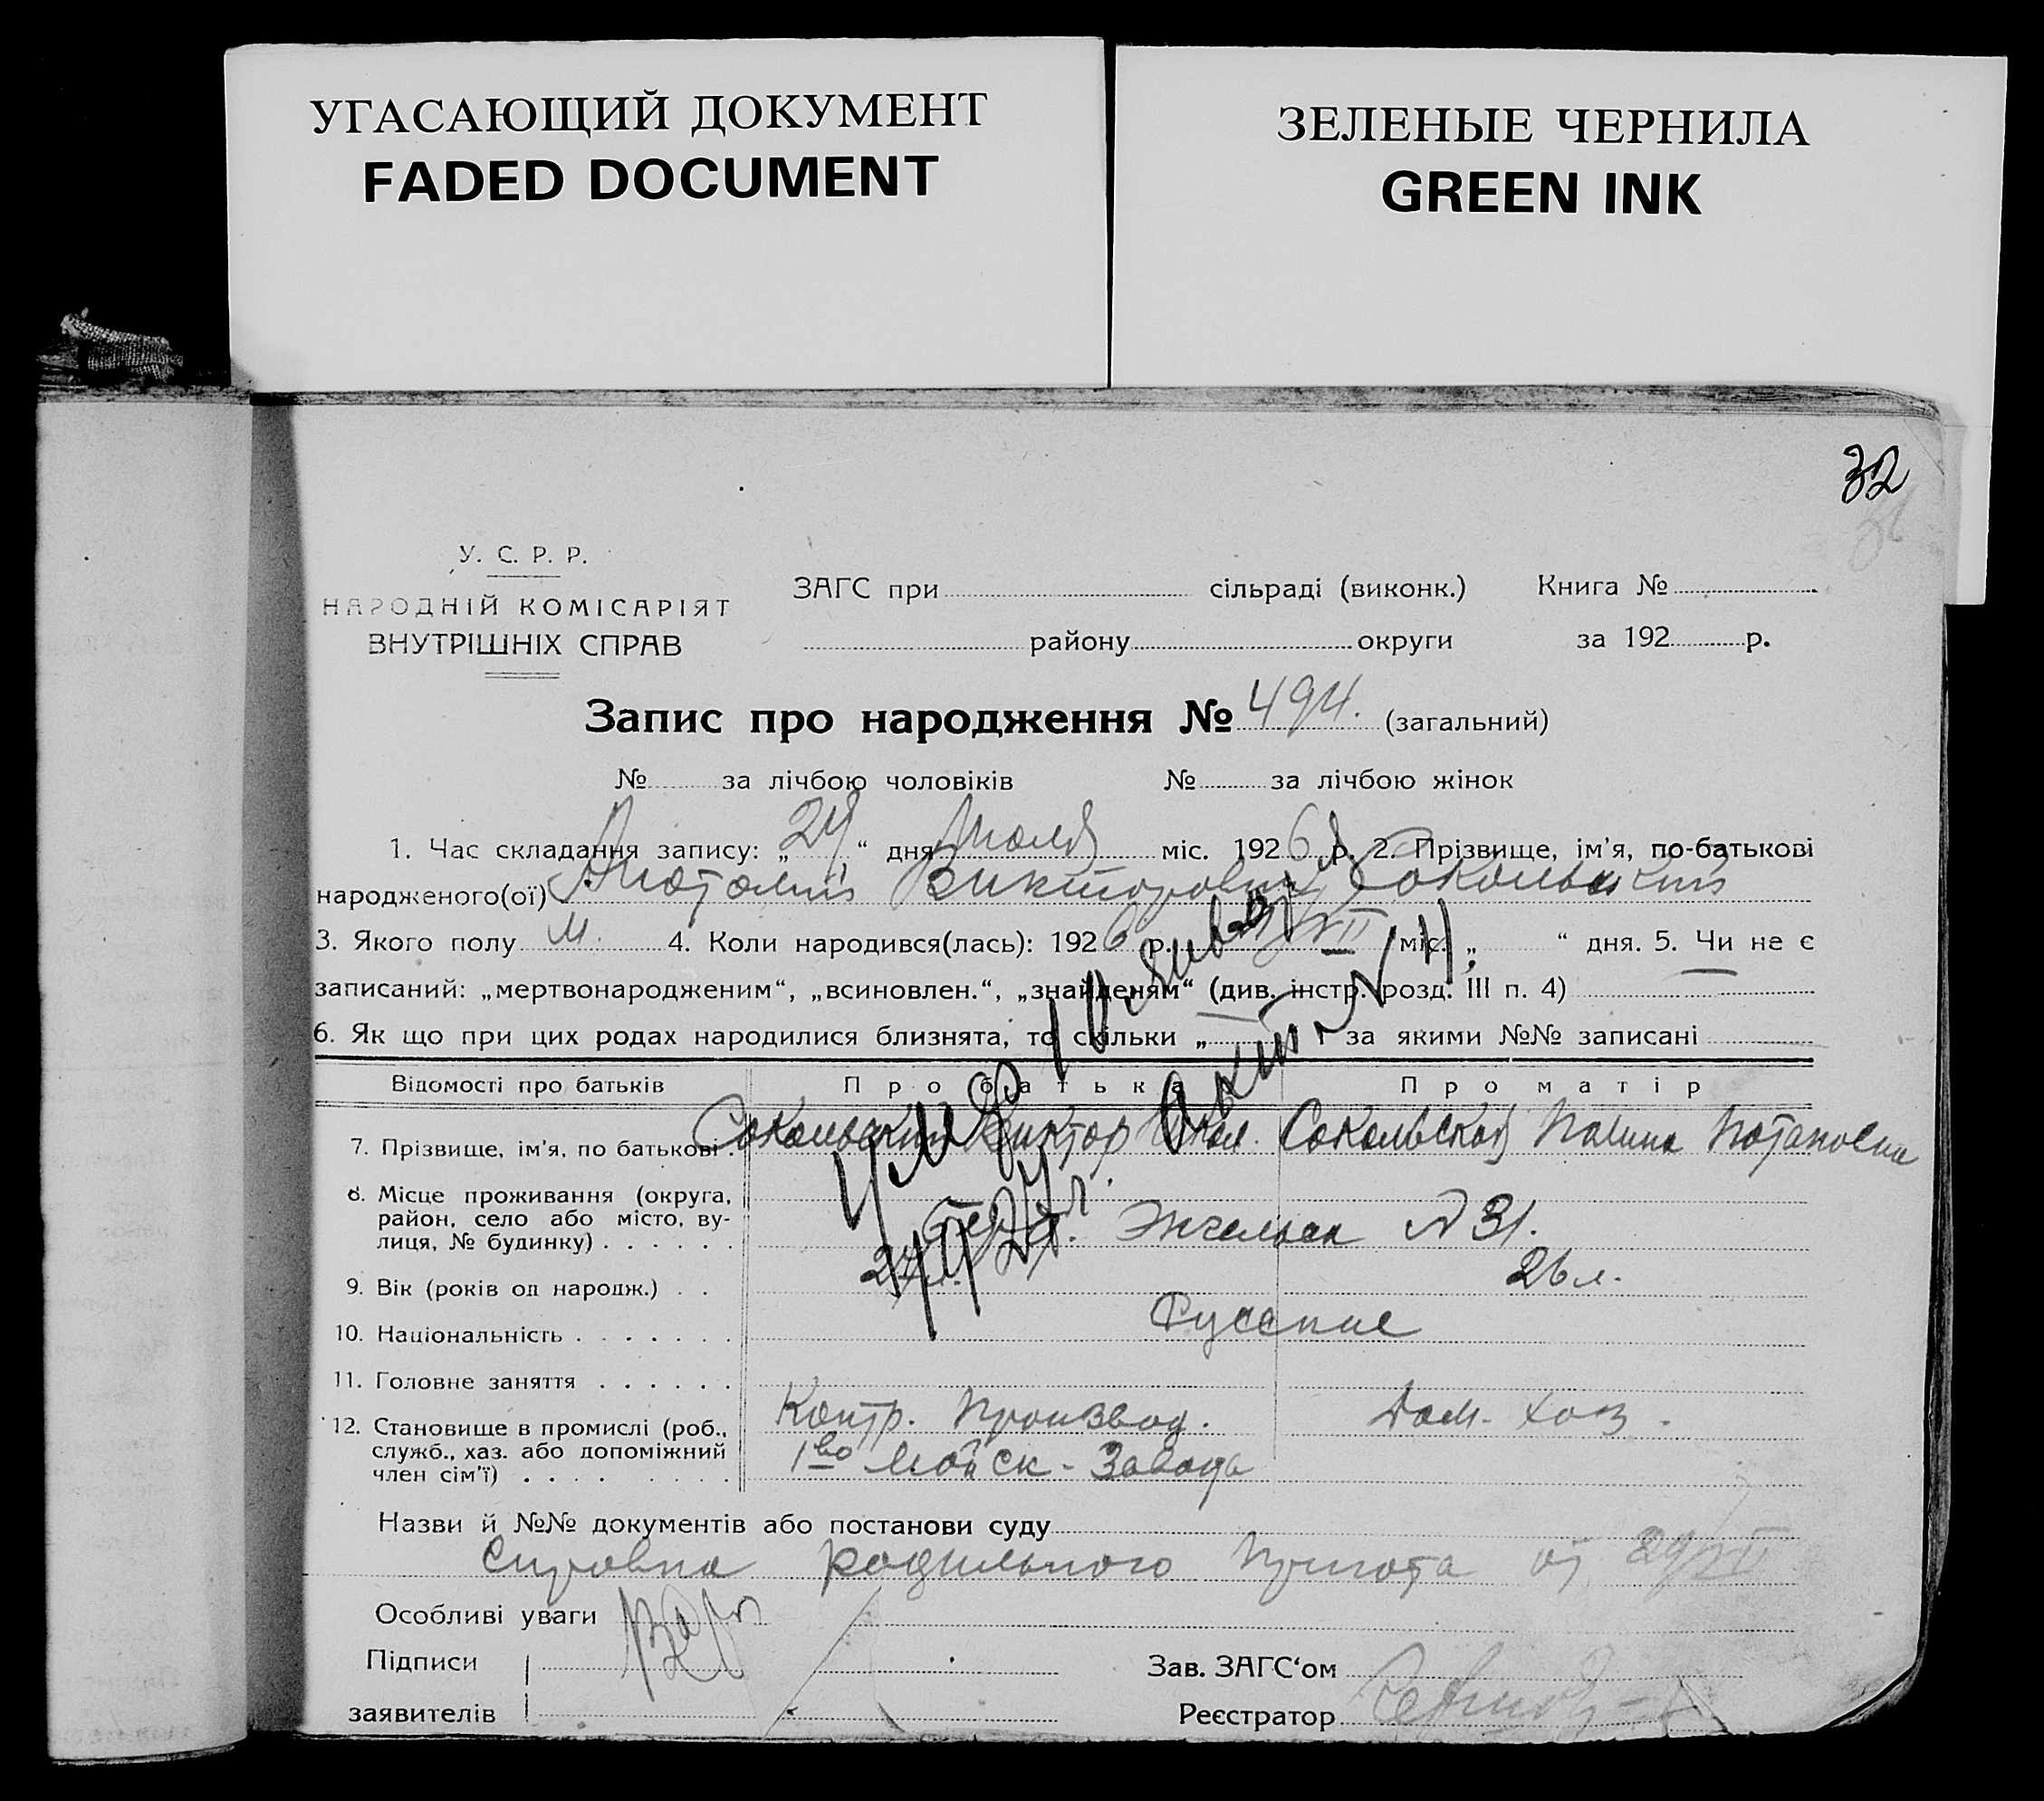 УГАСАЮЩИЙ ДОКУМЕНТ
FADED DOCUMENT
ЗЕЛЕНЫЕ ЧЕРНИЛА
GREEN INK
32
У. С. Р. Р.
НАРОДНІЙ КОМІСАРІЯТ
ВНУТРІШНІХ СПРАВ
ЗАГС при сільраді (виконк.) Книга №
району округи за 192 р.
Запис про народження № 494. (загальний)
№ за лічбою чоловіків № за лічбою жінок
1. Час складання запису: „24“ дня Июля міс. 1926 р. 2. Прізвище, ім'я, по-батькові
народженого(ої) Анатолий Викторович Сокольский
3. Якого полу м. 4. Коли народився(лась): 1926 р. VII міс. „ “ дня. 5. Чи не є
записаний: „мертвонародженим“, „всиновлен.“, „знайденям“ (див. інстр. розд. III п. 4)
6. Як що при цих родах народилися близнята, то скільки „ і за якими №№ записані
Умер 10 января
Акт N 11.
Відомості про батьків Про батька Про матір
7. Прізвище, ім'я, по батькові. Сокольский Виктор Сокольская Полина Потаповна
8. Місце проживання (округа,
район, село або місто, ву-
лиця, № будинку) . . . . . . Энгельса N 31.
9. Вік (років од народж.) . . 27 л. 26 л.
10. Національність . . . . . . . Русские
11. Головне заняття . . . . . .
12. Становище в промислі (роб.,
служб., хаз. або допоміжний
член сім'ї) . . . . . . . .
Контр. Производ. Дом. хоз.
1во Завода
Назви й №№ документів або постанови суду
Справка родильного приюта от 24/VII
Особливі уваги
Підписи
заявителів
Зав. ЗАГС'ом
Реєстратор